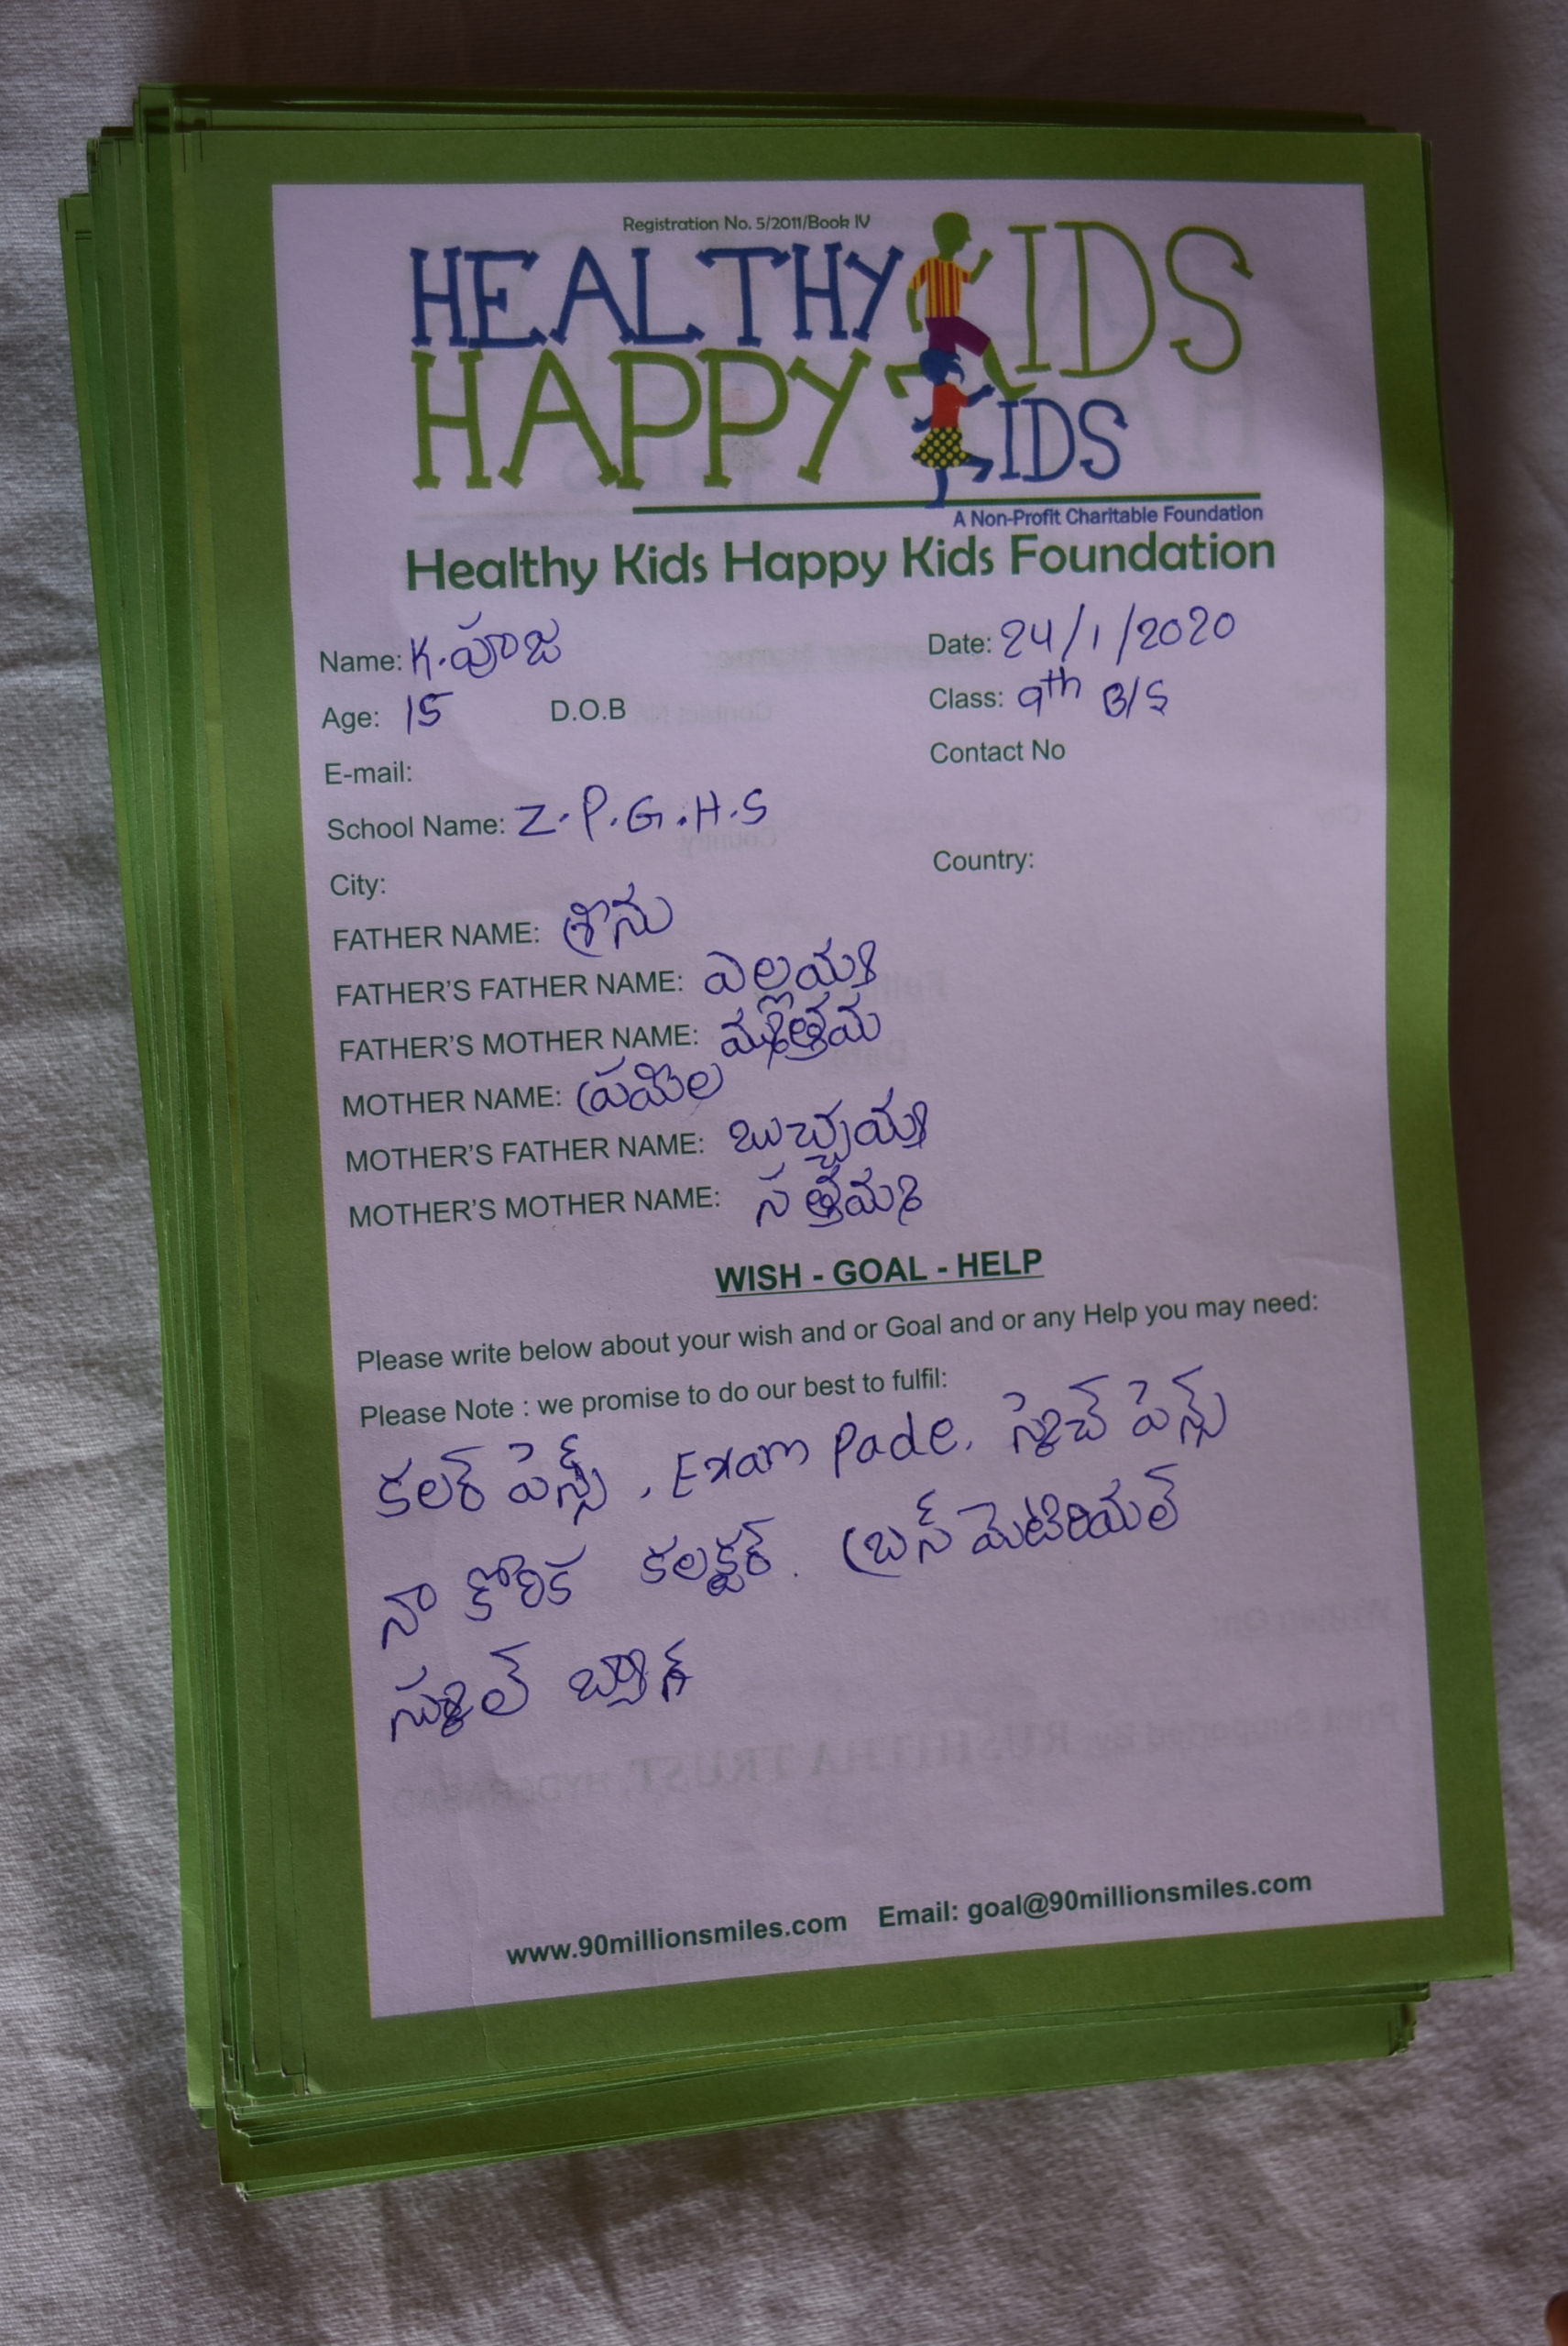 Registration No. 5/2011/Book IV
HEALTHY KIDS
HAPPY KIDS
A Non-Profit Charitable Foundation
Healthy Kids Happy Kids Foundation
Name: K.పూజ Date: 24/1/2020
Age: 15 D.O.B Class: 9th B/S
E-mail: Contact No
School Name: Z.P.G.H.S
City: Country:
FATHER NAME: శ్రీను
FATHER'S FATHER NAME: ఎల్లయ్య
FATHER'S MOTHER NAME:
MOTHER NAME: ప్రమీల
MOTHER'S FATHER NAME: బుచ్చయ్య
MOTHER'S MOTHER NAME: సత్తెమ్మ
WISH - GOAL - HELP
Please write below about your wish and or Goal and or any Help you may need:
Please Note : we promise to do our best to fulfil:
కలర్ పెన్స్, Exam Pade, స్కెచ్ పెన్స్
నా కోరిక కలక్టర్. బ్రస్ మెటిరియల్
స్కుల్ బ్యాగ్
www.90millionsmiles.com Email: goal@90millionsmiles.com